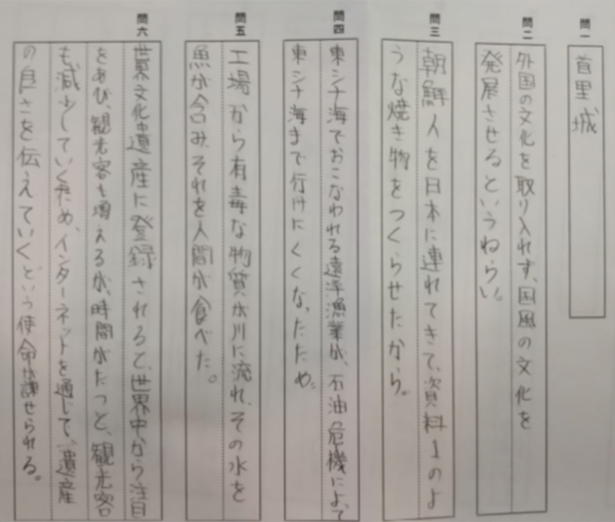 問一
首里城
問二
外国の文化を取り入れず、国風の文化を
発展させるというねらい。
問三
朝鮮人を日本に連れてきて、資料1のよ
うな焼き物をつくらせたから。
問四
東シナ海でおこなわれる遠洋漁業が、石油危機によって
東シナ海まで行けにくくなったため。
問五
工場から有毒な物質が川に流れ、その水を
魚が含みそれを人間が食べた。
問六
世界文化遺産に登録されると、世界中から注目
をあび、観光客も増えるが、時間がたつと、観光客
も減少していくため、インターネットを通じて、遺産
の良さを伝えていくという使命が課せられる。